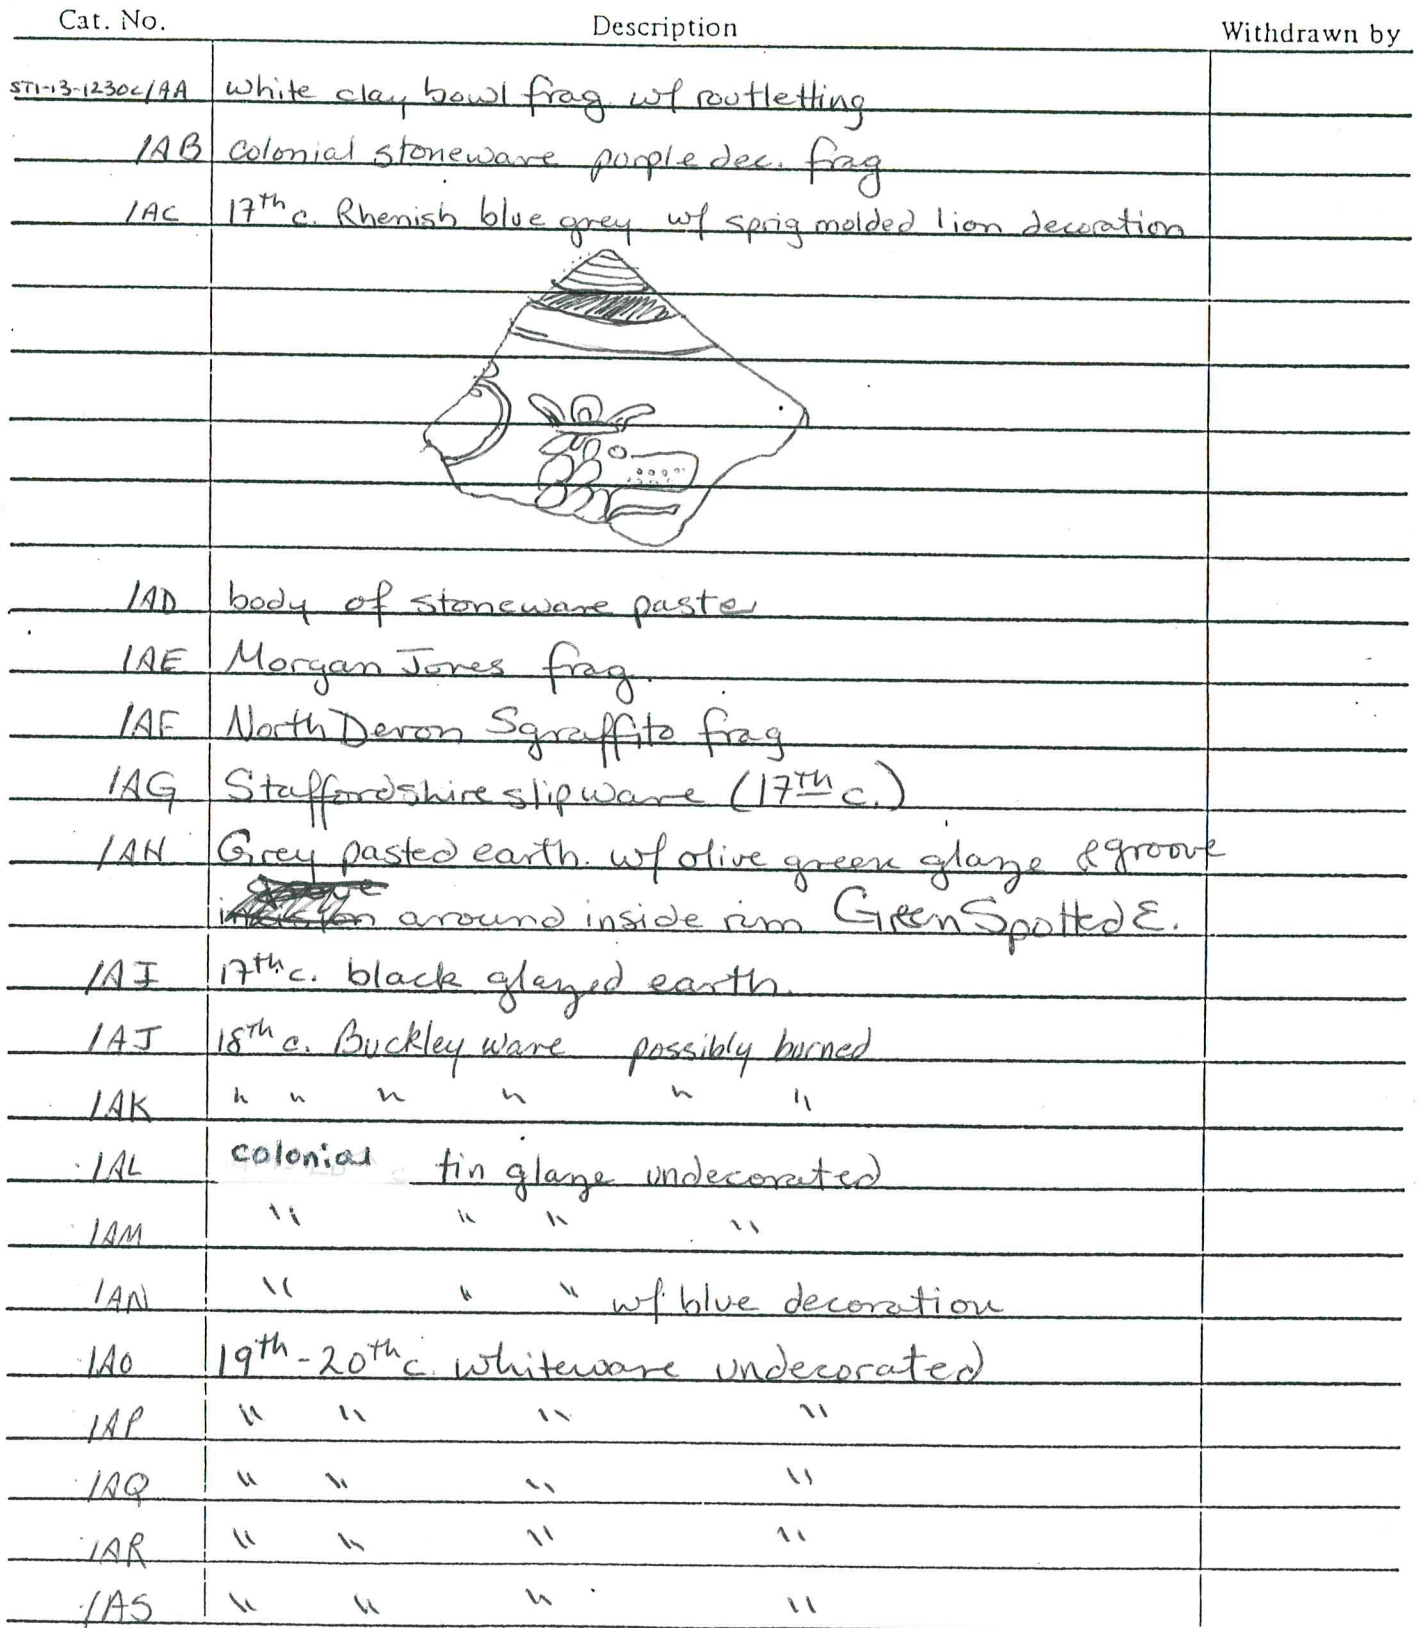 Cat. No. Description Withdrawn by
ST1-13-1230C/AA white clay bowl frag. w/ routletting
/AB colonial stoneware purple dec. frag
/AC 17th c. Rhenish blue grey w/ sprig molded lion decoration
/AD body of stoneware paste
/AE Morgan Jones frag.
/AF North Devon Sgraffito frag
/AG Staffordshire slipware (17th c.)
/AH Grey pasted earth. w/ olive green glaze & groove
around inside rim Green Spotted E.
/AI 17th c. black glazed earth.
/AJ 18th c. Buckley ware possibly burned
/AK " " " " " "
/AL colonial tin glaze undecorated
/AM " " " "
/AN " " " w/ blue decoration
/AO 19th-20th c. whiteware undecorated
/AP " " " "
/AQ " " " "
/AR " " " "
/AS " " " "